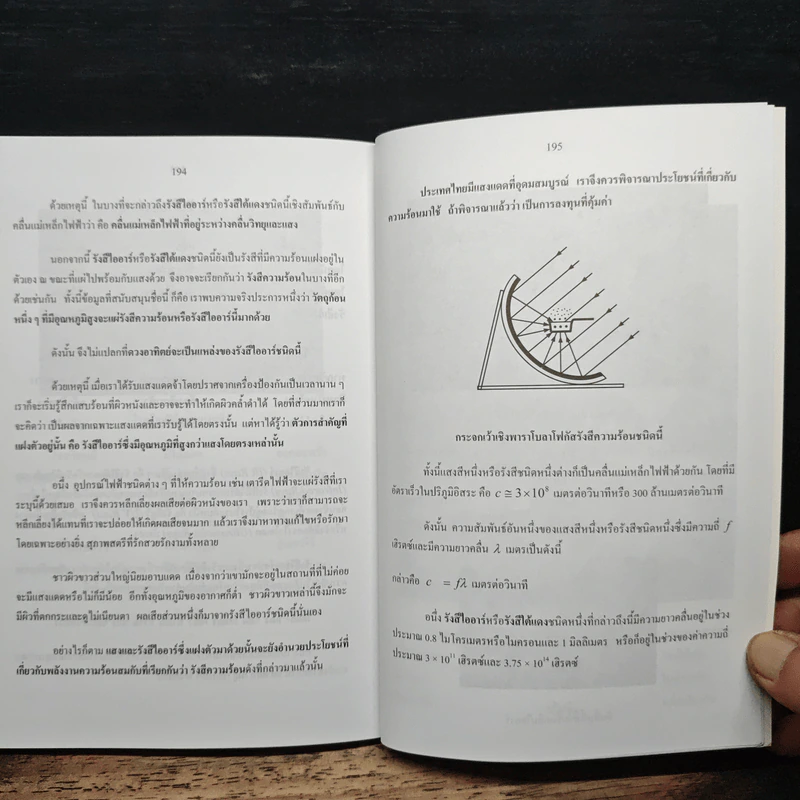 194
ด้วยเหตุนี้ ในบางที่จะกล่าวถึงรังสีไออาร์หรือรังสีใต้แดงชนิดนี้เชิงสัมพันธ์กับ
คลื่นแม่เหล็กไฟฟ้าว่า คือ คลื่นแม่เหล็กไฟฟ้าที่อยู่ระหว่างคลื่นวิทยุและแสง
นอกจากนี้ รังสีไออาร์หรือรังสีใต้แดงชนิดนี้ยังเป็นรังสีที่มีความร้อนแฝงอยู่ใน
ตัวเอง ณ ขณะที่แผ่ไปพร้อมกับแสงด้วย จึงอาจจะเรียกกันว่า รังสีความร้อนในบางที่อีก
ด้วยเช่นกัน ทั้งนี้ข้อมูลที่สนับสนุนชื่อนี้ ก็คือ เราพบความจริงประการหนึ่งว่า วัตถุก้อน
หนึ่ง ๆ ที่มีอุณหภูมิสูงจะแผ่รังสีความร้อนหรือรังสีไออาร์นี้มากด้วย
ดังนั้น จึงไม่แปลกที่ดวงอาทิตย์จะเป็นแหล่งของรังสีไออาร์ชนิดนี้
ด้วยเหตุนี้ เมื่อเราได้รับแสงแดดจ้าโดยปราศจากเครื่องป้องกันเป็นเวลานาน ๆ
เราก็จะเริ่มรู้สึกแสบร้อนที่ผิวหนังและอาจจะทำให้เกิดผิวคล้ำดำได้ โดยที่ส่วนมากเราก็
จะคิดว่า เป็นผลจากเฉพาะแสงแดดที่เรารับรู้ได้โดยตรงนั้น แต่หาได้รู้ว่า ตัวการสำคัญที่
แฝงตัวอยู่นั้น คือ รังสีไออาร์ซึ่งมีอุณหภูมิที่สูงกว่าแสงโดยตรงเหล่านั้น
อนึ่ง อุปกรณ์ไฟฟ้าชนิดต่าง ๆ ที่ให้ความร้อน เช่น เตารีดไฟฟ้าจะแผ่รังสีที่เรา
ระบุนี้ด้วยเสมอ เราจึงควรหลีกเลี่ยงผลเสียต่อผิวหนังของเรา เพราะว่าเราก็สามารถจะ
หลีกเลี่ยงได้แทนที่เราจะปล่อยให้เกิดผลเสียจนมาก แล้วเราจึงมาหาทางแก้ไขหรือรักษา
โดยเฉพาะอย่างยิ่ง สุภาพสตรีที่รักสวยรักงามทั้งหลาย
ชาวผิวขาวส่วนใหญ่นิยมอาบแดด เนื่องจากว่าเขามักจะอยู่ในสถานที่ที่ไม่ค่อย
จะมีแสงแดดหรือไม่ก็มีน้อย อีกทั้งอุณหภูมิของอากาศก็ต่ำ ชาวผิวขาวเหล่านี้จึงมักจะ
มีผิวที่ตกกระและดูไม่เนียนตา ผลเสียส่วนหนึ่งก็มาจากรังสีไออาร์ชนิดนี้นั่นเอง
อย่างไรก็ตาม แสงและรังสีไออาร์ซึ่งแฝงตัวมาด้วยนั้นจะยังอำนวยประโยชน์ที่
เกี่ยวกับพลังงานความร้อนสมกับที่เรียกกันว่า รังสีความร้อนดังที่กล่าวมาแล้วนั้น
195
ประเทศไทยมีแสงแดดที่อุดมสมบูรณ์ เราจึงควรพิจารณาประโยชน์ที่เกี่ยวกับ
ความร้อนมาใช้ ถ้าพิจารณาแล้วว่า เป็นการลงทุนที่คุ้มค่า
กระจกเว้าเชิงพาราโบลาโฟกัสรังสีความร้อนชนิดนี้
ทั้งนี้แสงสีหนึ่งหรือรังสีชนิดหนึ่งต่างก็เป็นคลื่นแม่เหล็กไฟฟ้าด้วยกัน โดยที่มี
อัตราเร็วในปริภูมิอิสระ คือ c ≅ 3×10⁸ เมตรต่อวินาทีหรือ 300 ล้านเมตรต่อวินาที
ดังนั้น ความสัมพันธ์อันหนึ่งของแสงสีหนึ่งหรือรังสีชนิดหนึ่งซึ่งมีความถี่ f
เฮิรตซ์และมีความยาวคลื่น λ เมตรเป็นดังนี้
กล่าวคือ c = fλ เมตรต่อวินาที
อนึ่ง รังสีไออาร์หรือรังสีใต้แดงชนิดหนึ่งที่กล่าวถึงนี้มีความยาวคลื่นอยู่ในช่วง
ประมาณ 0.8 ไมโครเมตรหรือไมครอนและ 1 มิลลิเมตร หรือก็อยู่ในช่วงของค่าความถี่
ประมาณ 3 × 10¹¹ เฮิรตซ์และ 3.75 × 10¹⁴ เฮิรตซ์